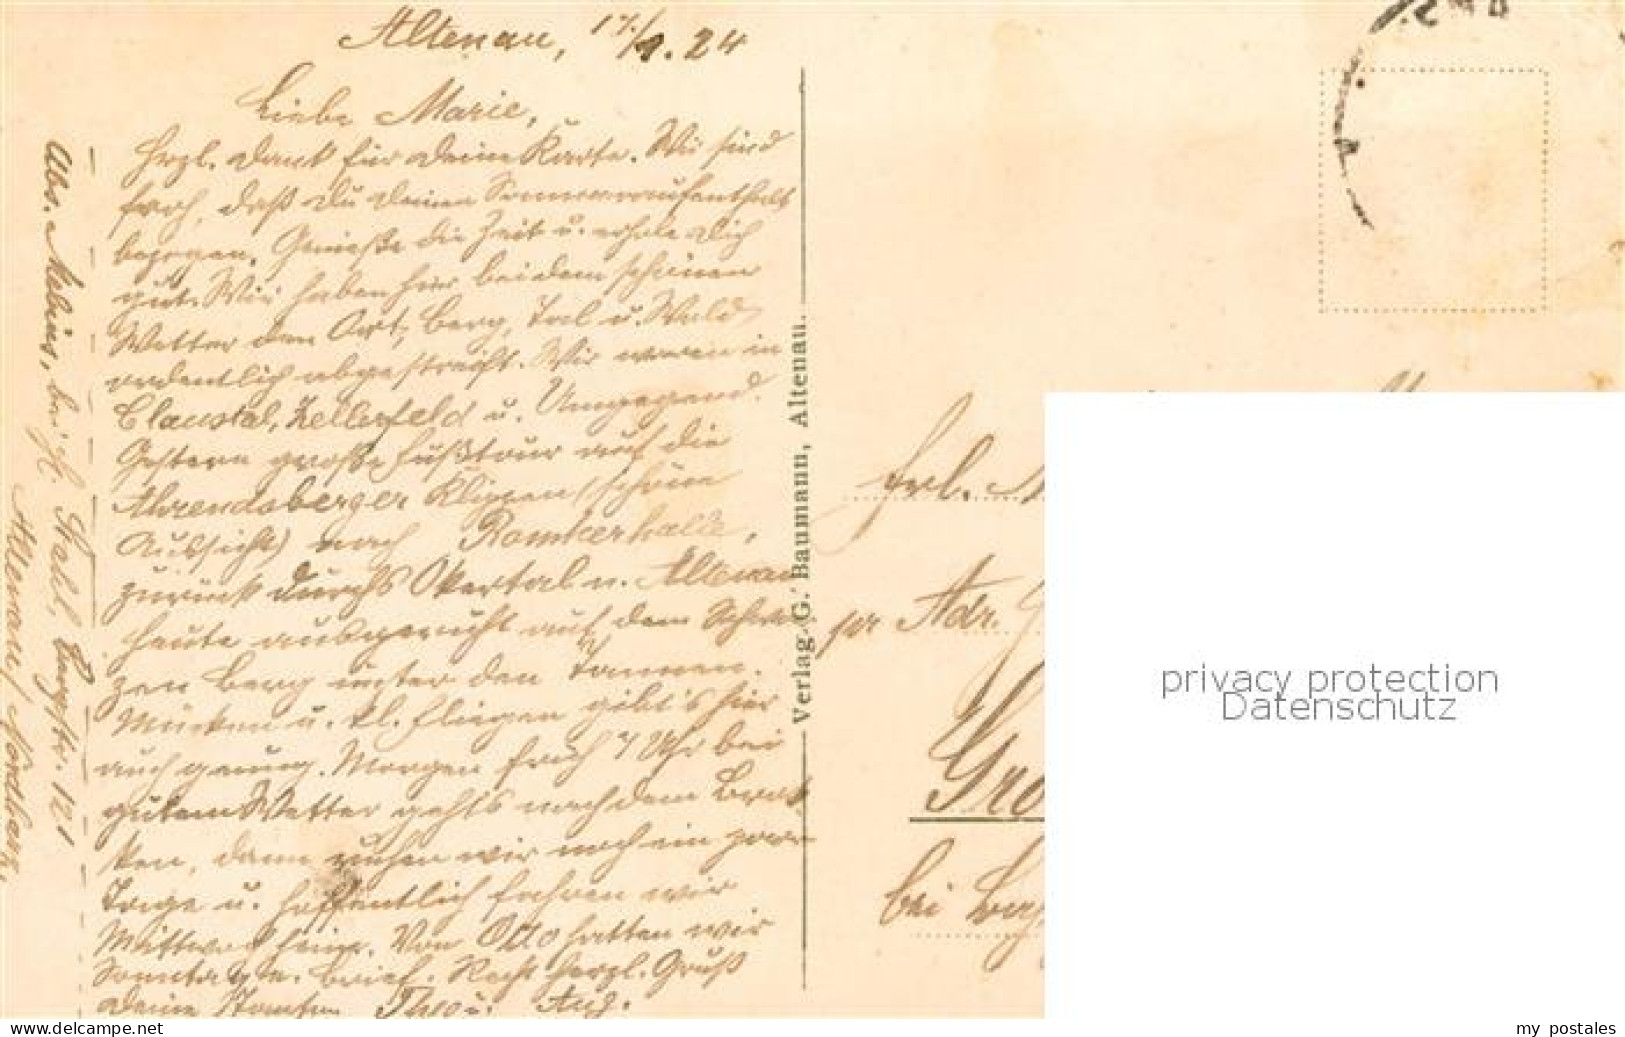 Altenau, 17./8. 24
Liebe Marie,
Herzl. Dank für Deine Karte. Wir sind
froh, daß Du Deinen Sommeraufenthalt
bezogen. Genieße die Zeit u. erhole Dich
gut. Wir haben hier bei dem schönen
Wetter den Ort, Berg, Tal u. Wald
ordentlich abgestreift. Wir waren in
Claustal, Zellerfeld u. Umgegend.
Gestern große Fußtour auf die
Ahrendsberger Klippen (schöne
Aussicht) nach Romkerhalle,
zurück durchs Okertal n. Altenau
heute ausgeruht auf dem Schwar-
zen Berg unter den Tannen.
Mücken u. kl. Fliegen gibt's hier
auch genug. Morgen früh 7 Uhr bei
gutem Wetter geht's nach dem Brok-
ken, dann ruhen wir noch ein paar
Tage u. hoffentlich fahren wir
Mittwoch heim. Von Otto hatten wir
Sonntag Brief. Recht herzl. Gruß
Deine Theo u. Aug.
Abs. bei H. Stall, 121
Altenau / Nordharz
Verlag G. Baumann, Altenau.
Frl.
pr Adr.
Gro
bei
privacy protection
Datenschutz
www.delcampe.net
my postales